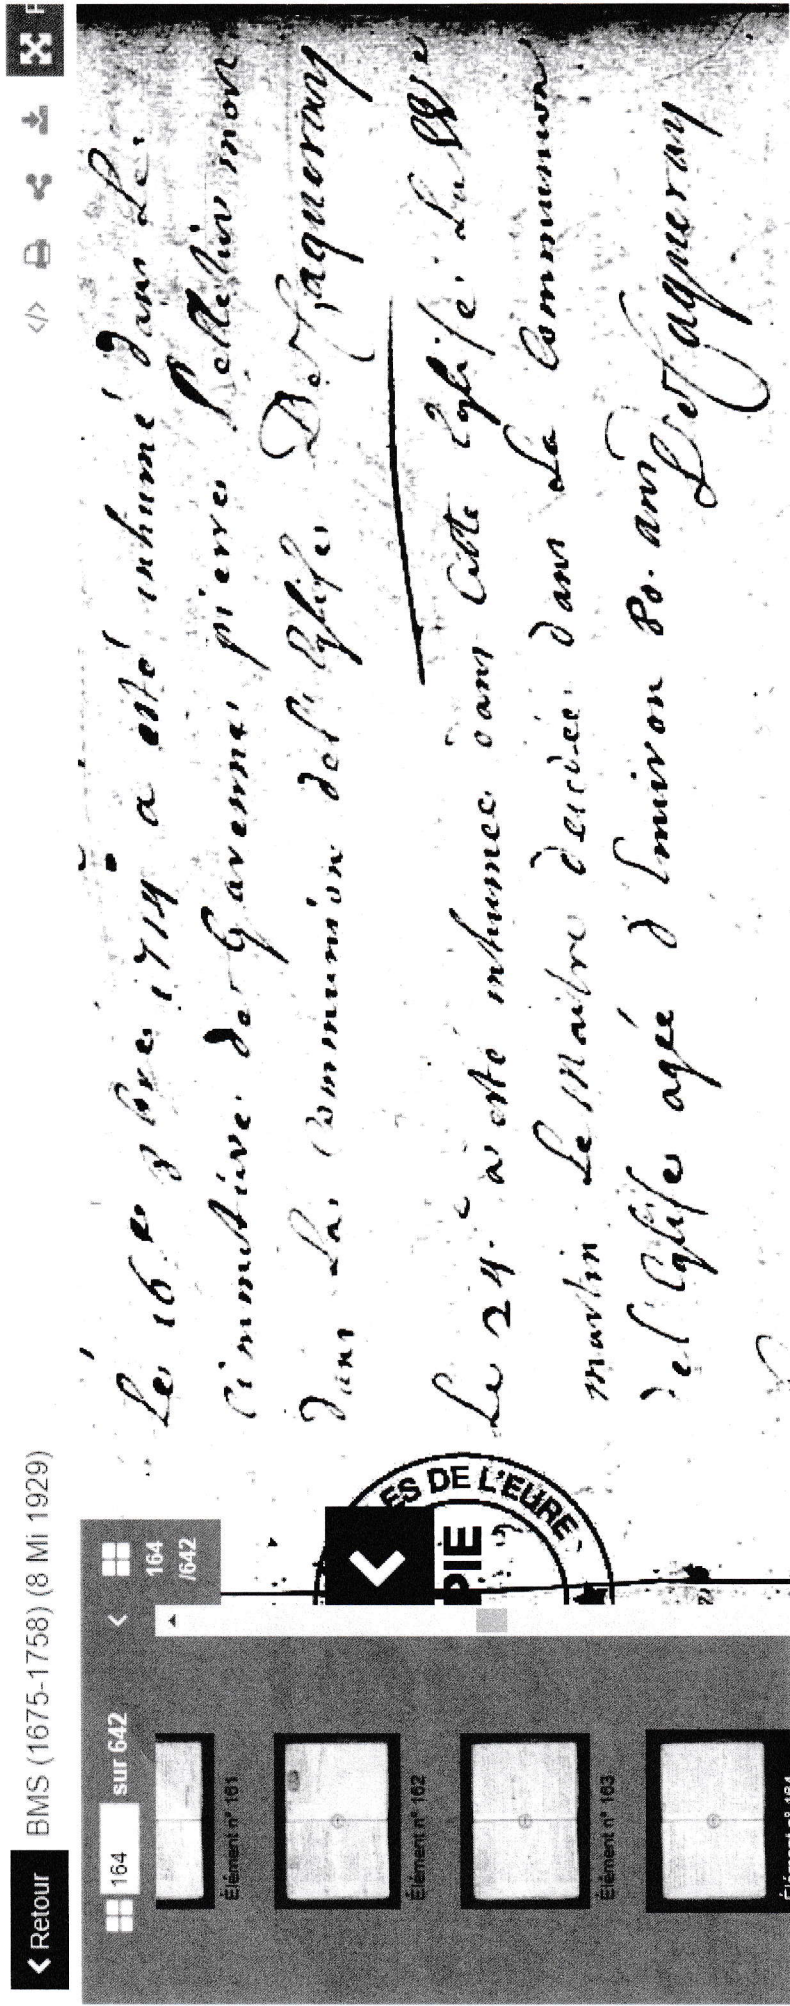 Retour BMS (1675-1758) (8 Mi 1929)
164 sur 642
164
/642
Élément n° 161
Élément n° 162
Élément n° 163
Élément n° 164
ES DE L'EURE
PIE
Le 16e 9bre 1714 a esté inhumé dans Le
cimmetiere de Gavenne pierre Pelletier mort
dans La Communion de l'Eglise
Le 24.e a esté inhumee dans Cette Eglise La
martin Le maitre decedee dans La Communion
de l'Eglise agée d'Enuiron 80. ans